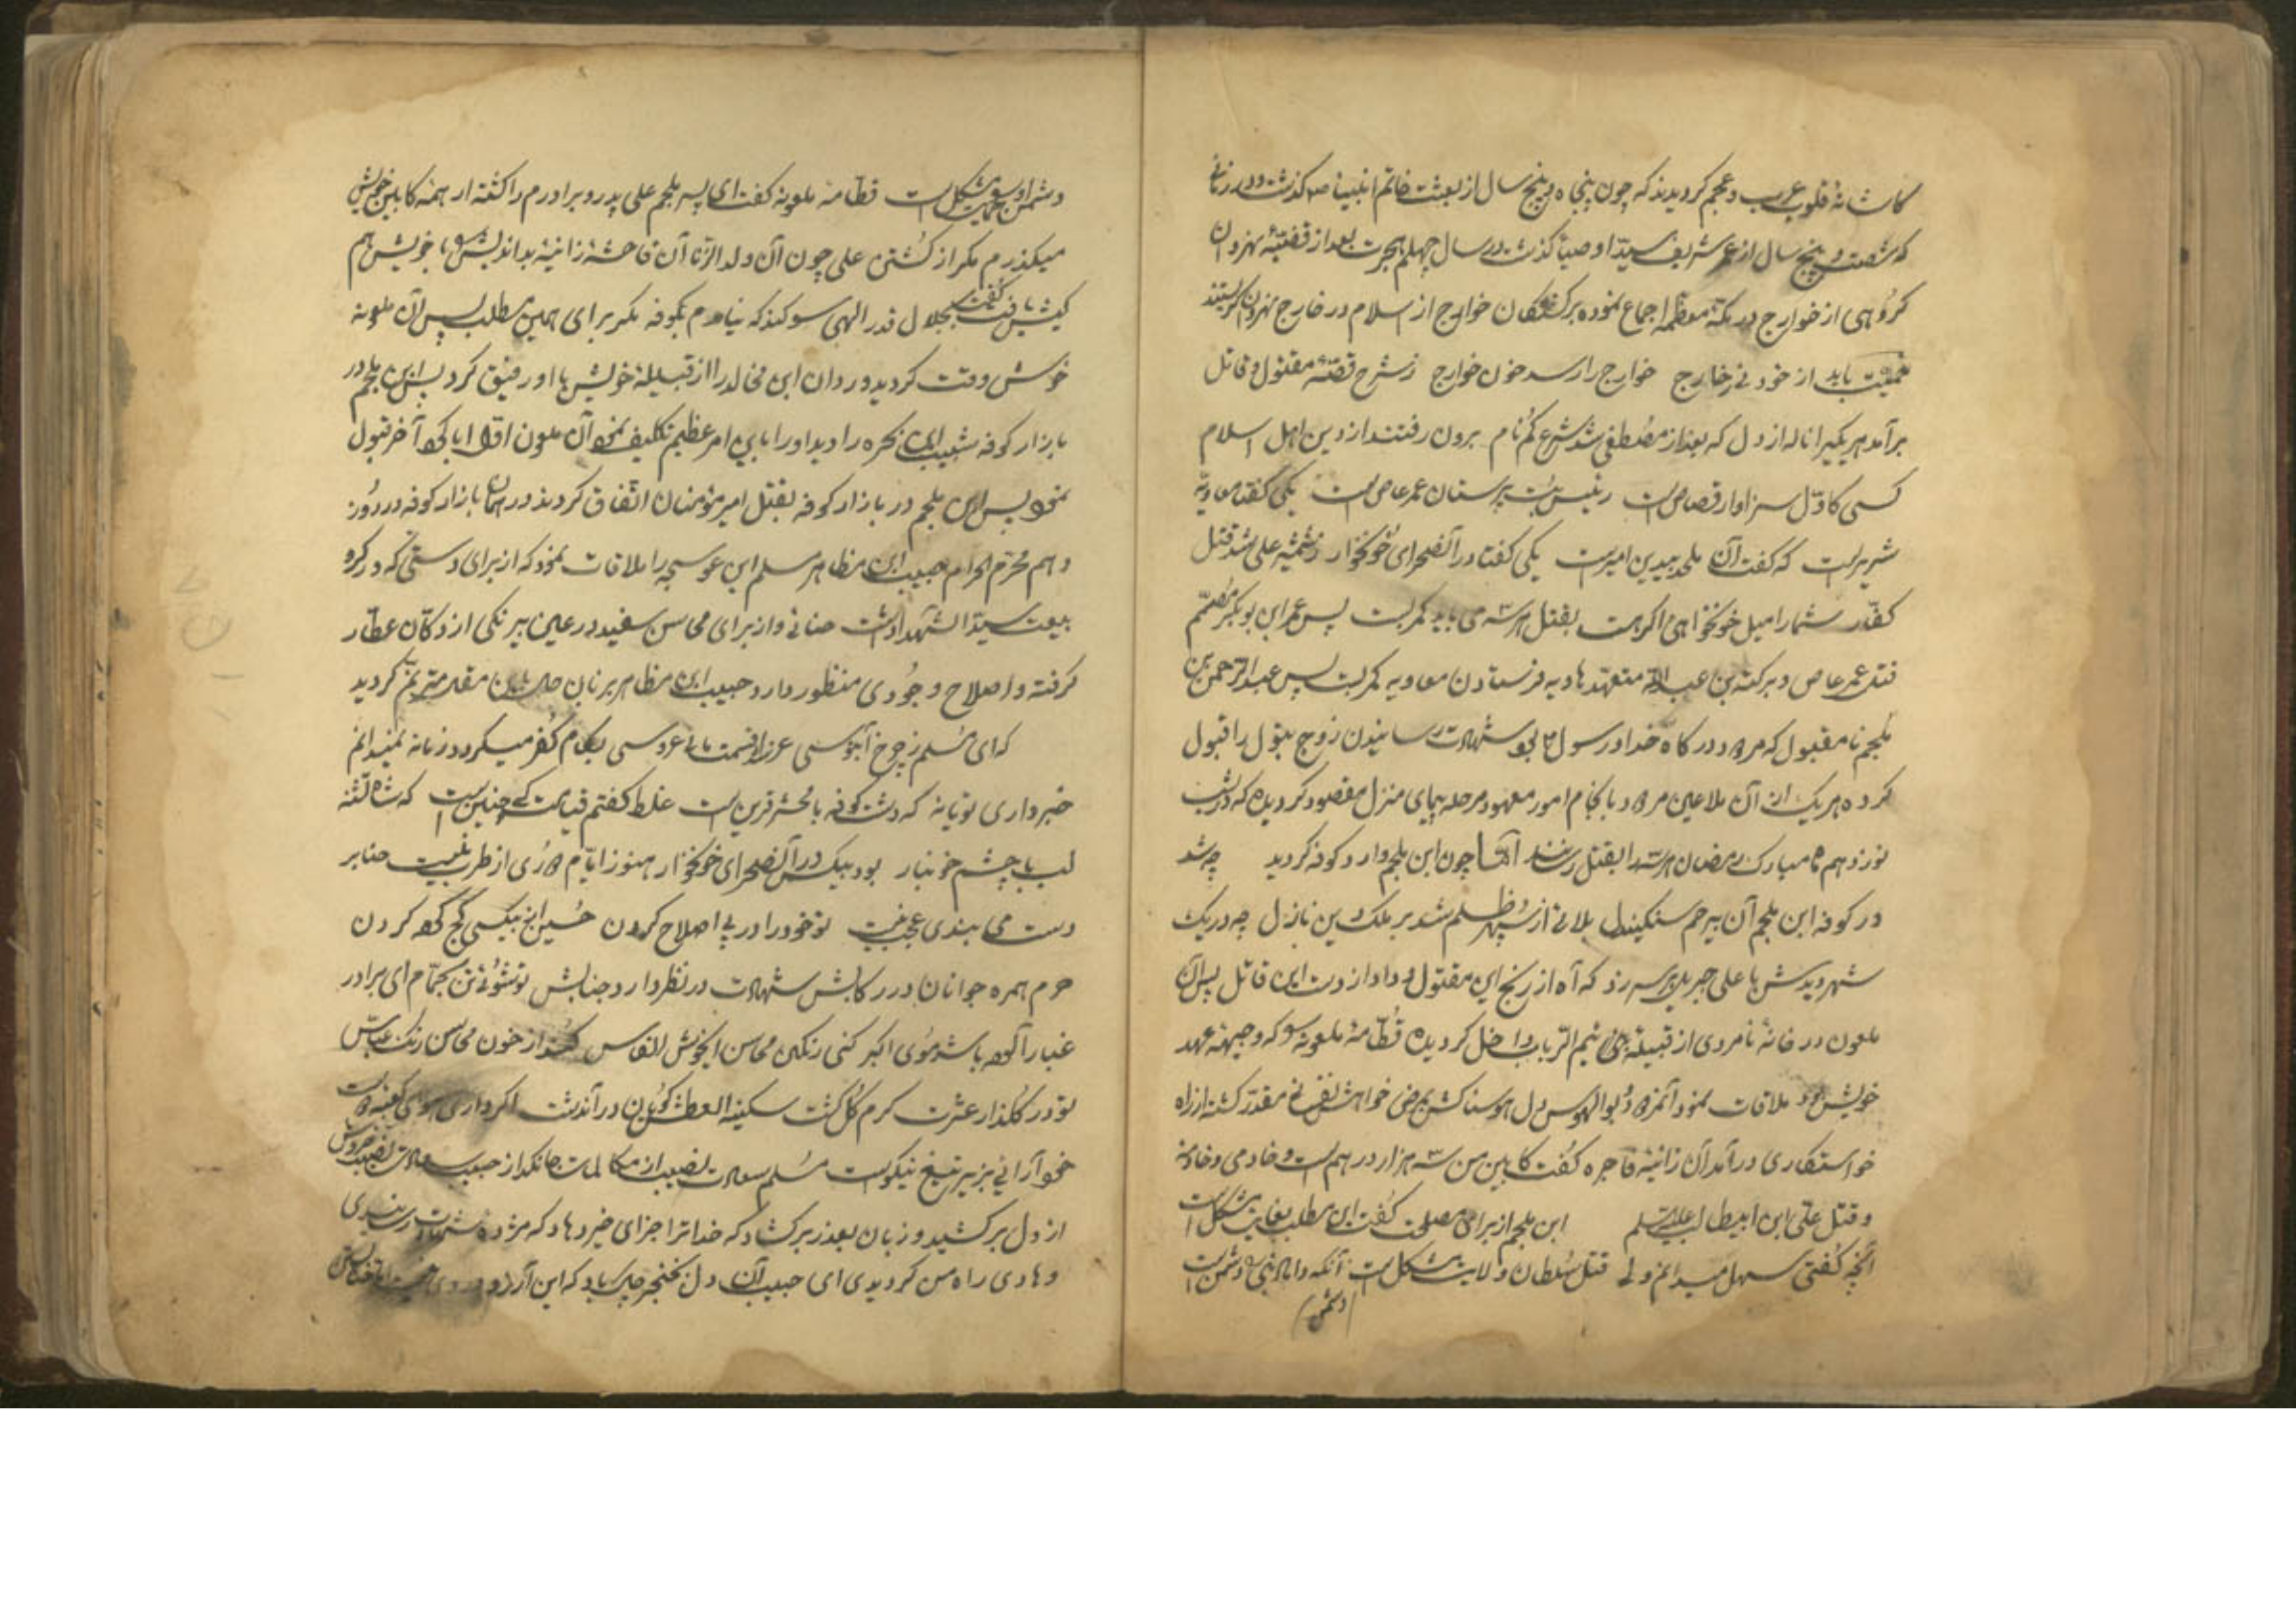 کاشانهٔ قلوب عرب و عجم کردیدند که چون پنجاه و پنج سال از بعثت خاتم انبیا صم کذشت و در زمانی
که شصت و پنج سال از عمر شریف سید اوصیا کذشت در سال چهلم هجرت بعد از قضیهٔ نهروان
کروهی از خوارج در مکهٔ معظمه اجماع نموده بر کشتکان خوارج از اسلام در خارج نهروان کریستند
باید از خود نی ز خارج خوارج را رسد خون خوارج ز شرح قصهٔ مقتول و قاتل
برآمد هر یکیرا ناله از دل که بعد از مصطفی شد شرع کم نام برون رفتند از دین اهل اسلام
کسی کاول سزاوار قصاص است رئیس بت پرستان عمرعاص است یکی کفتا معاویه
شریر است که کفت آن ملحد بیدین امیر است یکی کفتا در آنصحرای خونخوار ز شمشیر علی شد قتل
کفار شما را میل خونخواهی اکر هست بقتل هر سه می باید کمر بست پس عمر ابن بوبکر مصمم
قتل عمرعاص و برکة بن عبدالله متعهد هادیه فرستادن معاویه کمر بست پس عبدالرحمن بن
ملجم نامقبول که مردود درکاه خدا و رسول م بود شهادت رسانیدن زوج بتول را قبول
کرده هر یک از آن ملاعین مردود بانجام امور معهود مرحله پیمای منزل مقصود کردیده که در شب
نوزدهم ماه مبارک رمضان هر سه را بقتل رسانند اما چون ابن ملجم وارد کوفه کردید چه شد
در کوفه ابن ملجم آن بیرحم سنکیندل بلائی از سپهر ظلم شد بر ملک دین نازل چه در یک
شهر دیدش با علی جبریل بر سر زد که آه از رنج این مقتول و داد از دست این قاتل پس آن
ملعون در خانهٔ نامردی از قبیلهٔ بنی تیم الرباب داخل کردیده قطامهٔ ملعونه را که وجیههٔ عهد
خویش بود ملاقات نمود آنمردود بوالهوس دل هوسناکش بمرض خواهش نفسانی مقدر کشته از راه
خواستکاری درآمد آن زانیهٔ فاجره کفت کابین من سه هزار درهم است و خادمی و خادمهٔ
و قتل علی ابن ابیطالب علیه السلم ابن ملجم از برای مصلحت کفت این مطلب بغایت مشکل است
آنچه کفتی سهل میدانم ولی قتل سلطان ولایت مشکل است آنکه داماد نبی را دشمن است
(دشمن)
دشمن او را مشکل است قطامهٔ ملعونه کفت ای پسر ملجم علی پدر و برادرم را کشته از همهٔ کابین خویش
میکذرم مکر از کشتن علی چون آن ولد الزنا آن فاحشهٔ زانیهٔ بداندیش را با خویش هم
کیش یافت کفت بجلال قدر الهی سوکند که نیامدم بکوفه مکر برای همین مطلب پس آن ملعونه
خوش وقت کردید وردان ابن مخالد را از قبیلهٔ خویش با او رفیق کرد پس ابن ملجم در
بازار کوفه شبیب ابن بجره را دید او را باین امر عظیم تکلیف نمود آن ملعون اول ابا کرد آخر قبول
نمود پس ابن ملجم در بازار کوفه بقتل امیر مؤمنان اتفاق کردند در همان بازار کوفه در روز
دهم محرم الحرام حبیب ابن مظاهر مسلم ابن عوسجه را ملاقات نمود که از برای دستی که در کرو
بیعت سید الشهدا داشت حنائی و از برای محاسن سفید در عین بیرنکی از دکان عطار
کرفته و اصلاح وجودی منظور دارد حبیب ابن مظاهر بزبان حال باین مقال مترنم کردید
که ای مسلم ز چرخ آبنوسی عزا قسمت بما نه عروسی بکام کفر میکردد زمانه نمیدانم
خبر داری تو یا نه که دشت کوفه با محشر قرین است غلط کفتم قیامت کی چنین است که شاه تشنه
لب با چشم خونبار بود بیکس در آنصحرای خونخوار هنوز ایام دوری از طرب نیست حنا بر
دست می بندی عجب نیست تو خود را در پی اصلاح کردن حسین از بیکسی کج کرده کردن
حرم همره جوانان در رکابش شهادت در نظر دارد جنابش تو شوئی تن بحمام ای برادر
غبار آلود باشد موی اکبر کنی رنکین محاسن ایخوش انفاس کند از خون محاسن رنک عباس
تو در کلذار عشرت کرم کلکشت سکینه العطش کویان در آندشت اکر داری هوای کعبهٔ دوست
خود آرائی بزیر تیغ نیکوست مسلم سعادت نصیب از مکالمات جانکداز حبیب سعادت نصیب خروش
از دل برکشید و زبان بعذر برکشاد که خدا ترا جزای خیر دهاد که مژده شهادت رسانیدی
و هادی راه من کردیدی ای حبیب آن دل بخنجر چاک باد که این آرزو